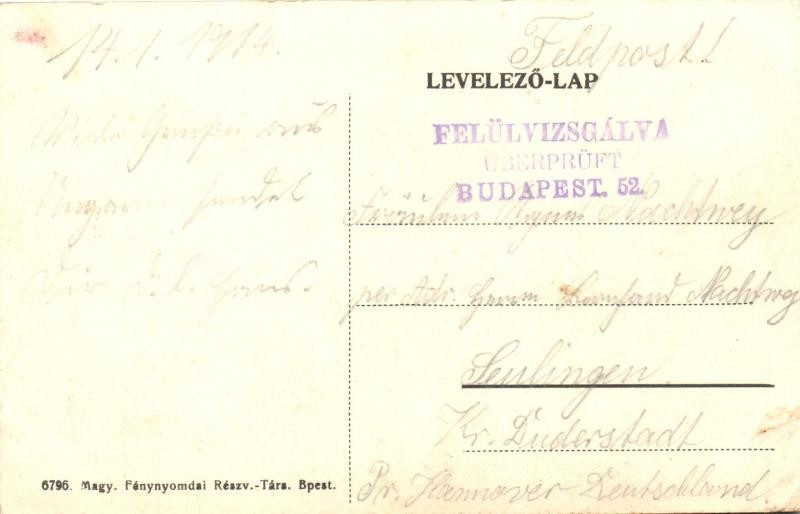 14.1.1914.
Feldpost!
LEVELEZŐ-LAP
FELÜLVIZSGÁLVA
ÜBERPRÜFT
BUDAPEST. 52.
Viele Grüße aus
Ungarn sendet
Dir d. l. Hans.
Fräulein Agnes Nachtwey
per Adr. Herrn Bernhard Nachtwey
Seulingen
Kr. Duderstadt
Pr. Hannover Deutschland.
6796. Magy. Fénynyomdai Részv.-Társ. Bpest.